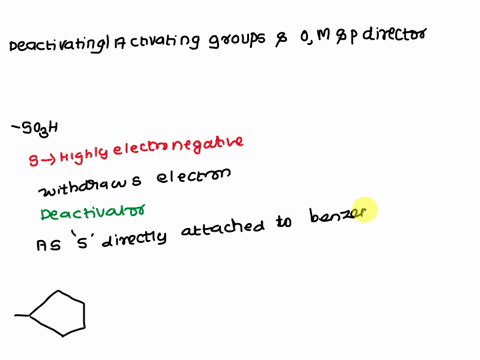 Deactivating/Activating groups & O, M & P director
-SO3H
S → Highly electronegative
withdraws electron
Deactivator
As 'S' directly attached to benzen